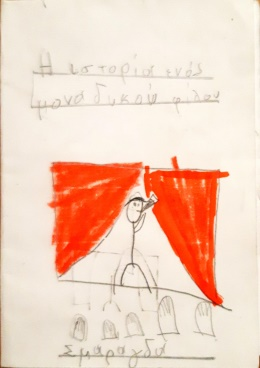 Η ιστορία ενός
μοναδικού φίλου
Σμαραγδα